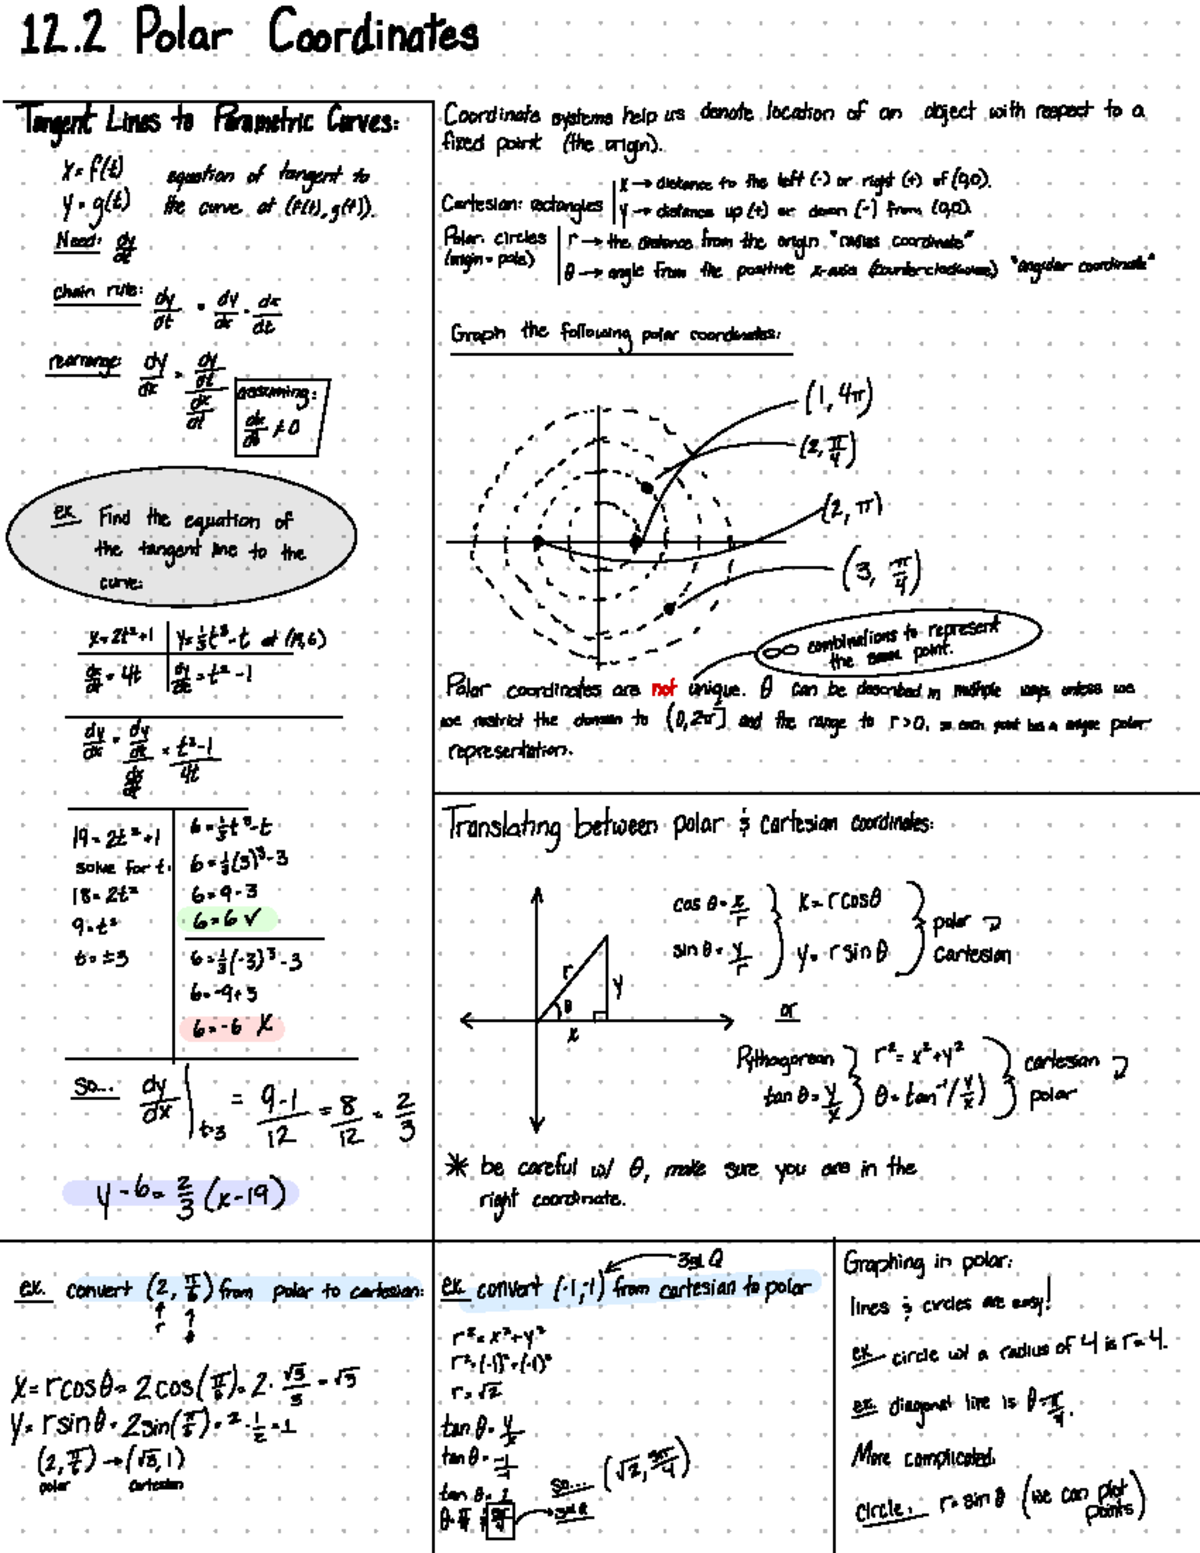 12.2 Polar Coordinates
Tangent Lines to Parametric Curves:
x = f(t) equation of tangent to
y = g(t) the curve at (f(t), g(t)).
Need: dy/dt
chain rule: dy/dt = dy/dx · dx/dt
rearrange: dy/dx = dy/dt / dx/dt
assuming:
dx/dt ≠ 0
ex. Find the equation of
the tangent line to the
curve:
x = 2t²+1 | y = 1/3t³ - t at (19,6)
dx/dt = 4t | dy/dt = t² - 1
dy/dx = dy/dt / dx/dt = t²-1 / 4t
19 = 2t² + 1
solve for t.
18 = 2t²
9 = t²
t = ±3
6 = 1/3t³ - t
6 = 1/3(3)³ - 3
6 = 9 - 3
6 = 6 ✓
6 = 1/3(-3)³ - 3
6 = -9 + 3
6 = -6 X
So... dy/dx | t=3 = 9-1/12 = 8/12 = 2/3
y - 6 = 2/3 (x - 19)
Coordinate systems help us denote location of an object with respect to a
fixed point (the origin).
Cartesian: rectangles | x → distance to the left (-) or right (+) of (0,0).
y → distance up (+) or down (-) from (0,0).
Polar: circles | r → the distance from the origin "radius coordinate"
(origin = pole) θ → angle from the positive x-axis (counterclockwise) "angular coordinate"
Graph the following polar coordinates:
(1, 4π)
(2, π/4)
(2, π)
(3, π/4)
∞ combinations to represent
the same point.
Polar coordinates are not unique. θ can be described in multiple ways unless we
we restrict the domain to (0, 2π] and the range to r > 0, so each point has a unique polar
representation.
Translating between polar & cartesian coordinates:
cos θ = x/r } x = r cos θ
sin θ = y/r } y = r sin θ
polar
cartesian
r
y
θ
x
or
Pythagorean } r² = x² + y²
tan θ = y/x } θ = tan⁻¹(y/x)
cartesian
polar
* be careful w/ θ, make sure you are in the
right coordinate.
ex. convert (2, π/6) from polar to cartesian:
r
x = r cos θ = 2 cos(π/6) = 2 · √3/3 = √3
y = r sin θ = 2 sin(π/6) = 2 · 1/2 = 1
(2, π/6) → (√3, 1)
polar cartesian
3rd Q
ex. convert (-1,-1) from cartesian to polar
r² = x² + y²
r² = (-1)² + (-1)²
r = √2
tan θ = y/x
tan θ = -1/-1
tan θ = 1
3rd Q
so... (√2, 5π/4)
Graphing in polar:
lines & circles are easy!
ex. circle w/ a radius of 4 is r = 4.
ex. diagonal line is θ = π/4.
More complicated.
circle: r = sin θ (we can plot
points)